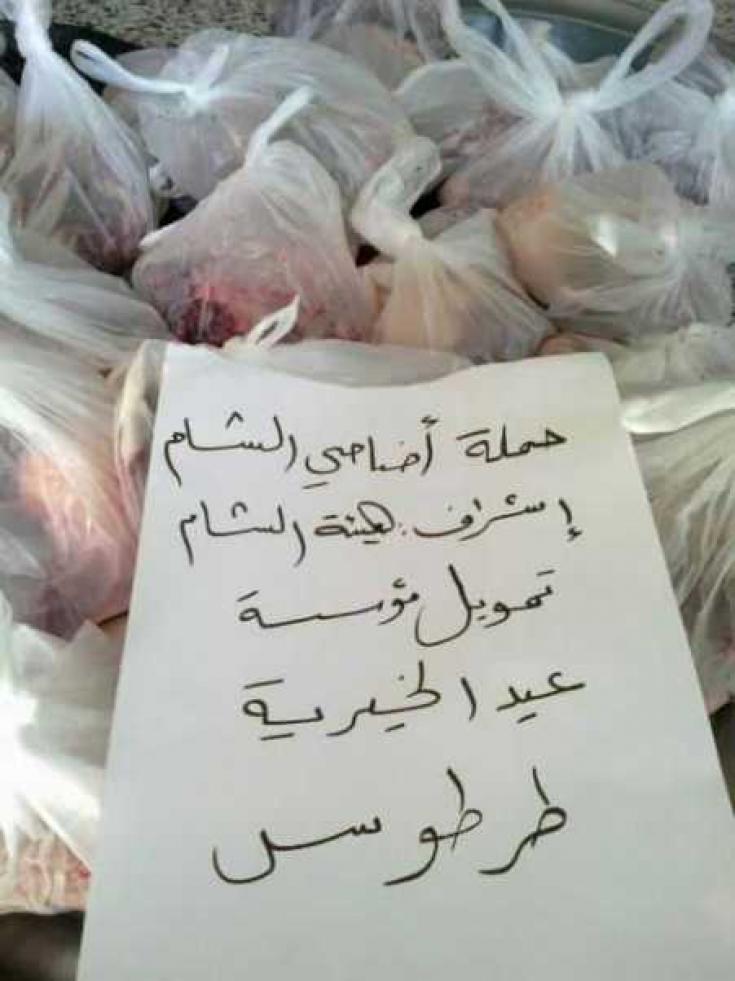 حملة أضاحي الشام
إشراف: هيئة الشام
تمويل مؤسسة
عيد الخيرية
طرطوس